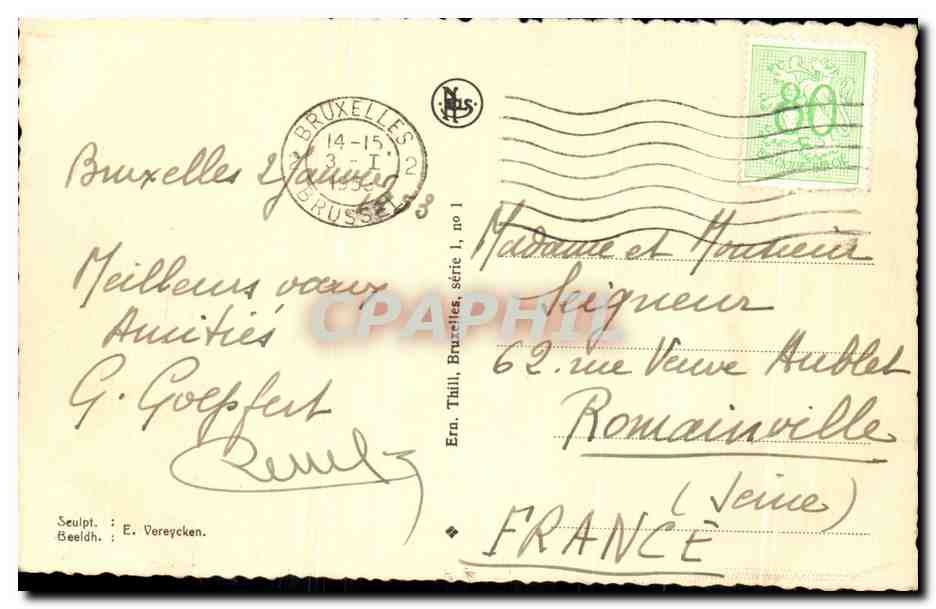 Bruxelles 2 Janvier
1953
Meilleurs vœux
Amitiés
G. Goepfert
Sculpt. :
Beeldh. :
E. Vereycken.
BRUXELLES
14-15
3 - I
2
BRUSSEL
NELS
Ern. Thill, Bruxelles, série 1, no 1
80
Madame et Monsieur
Seigneur
62. rue Veuve Aublet
Romainville
(Seine)
FRANCE
CPAPHIL